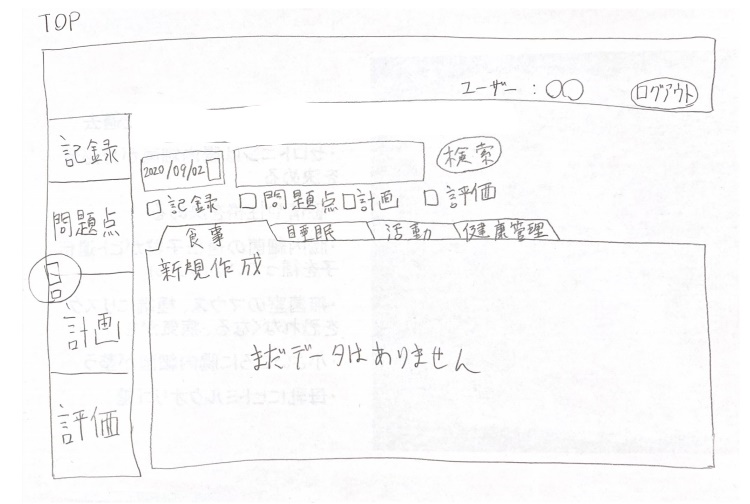 TOP
ユーザー：○○ ログアウト
記録
問題点
計画
評価
2020/09/02 検索
□記録 □問題点 □計画 □評価
食事 睡眠 活動 健康管理
新規作成
まだデータはありません